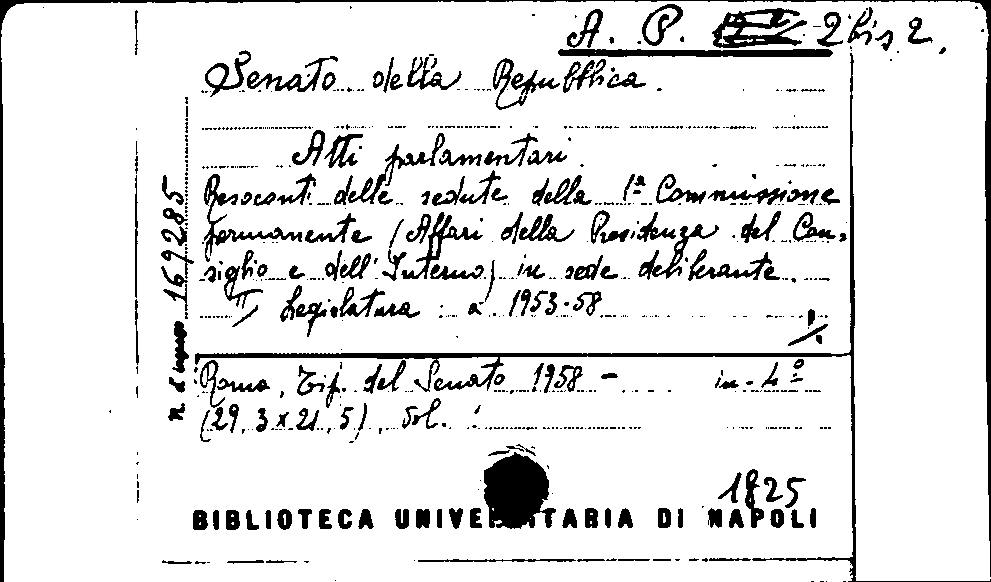 A. P. 2 bis 2.
Senato della Repubblica.
Atti parlamentari.
Resoconti delle sedute della 1ª Commissione
permanente (Affari della Presidenza del Con-
siglio e dell'Interno) in sede deliberante.
II Legislatura: a. 1953-58
./.
n. d'ingresso 169285
Roma, Tip. del Senato, 1958 - in-4º
(29,3x21,5), vol. :
1825
BIBLIOTECA UNIVERSITARIA DI NAPOLI